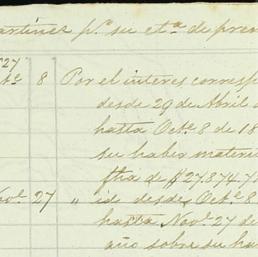 artinez pr. su cta. de pren
27
Octe. 8 Por el interes corresp
desde 29 de Abril
hasta Octe. 8 de 18
su haber materi
fha de $27874.7
Nov. 27 " id desde Octe. 8
hasta Nove. 27 de
año sobre su ha